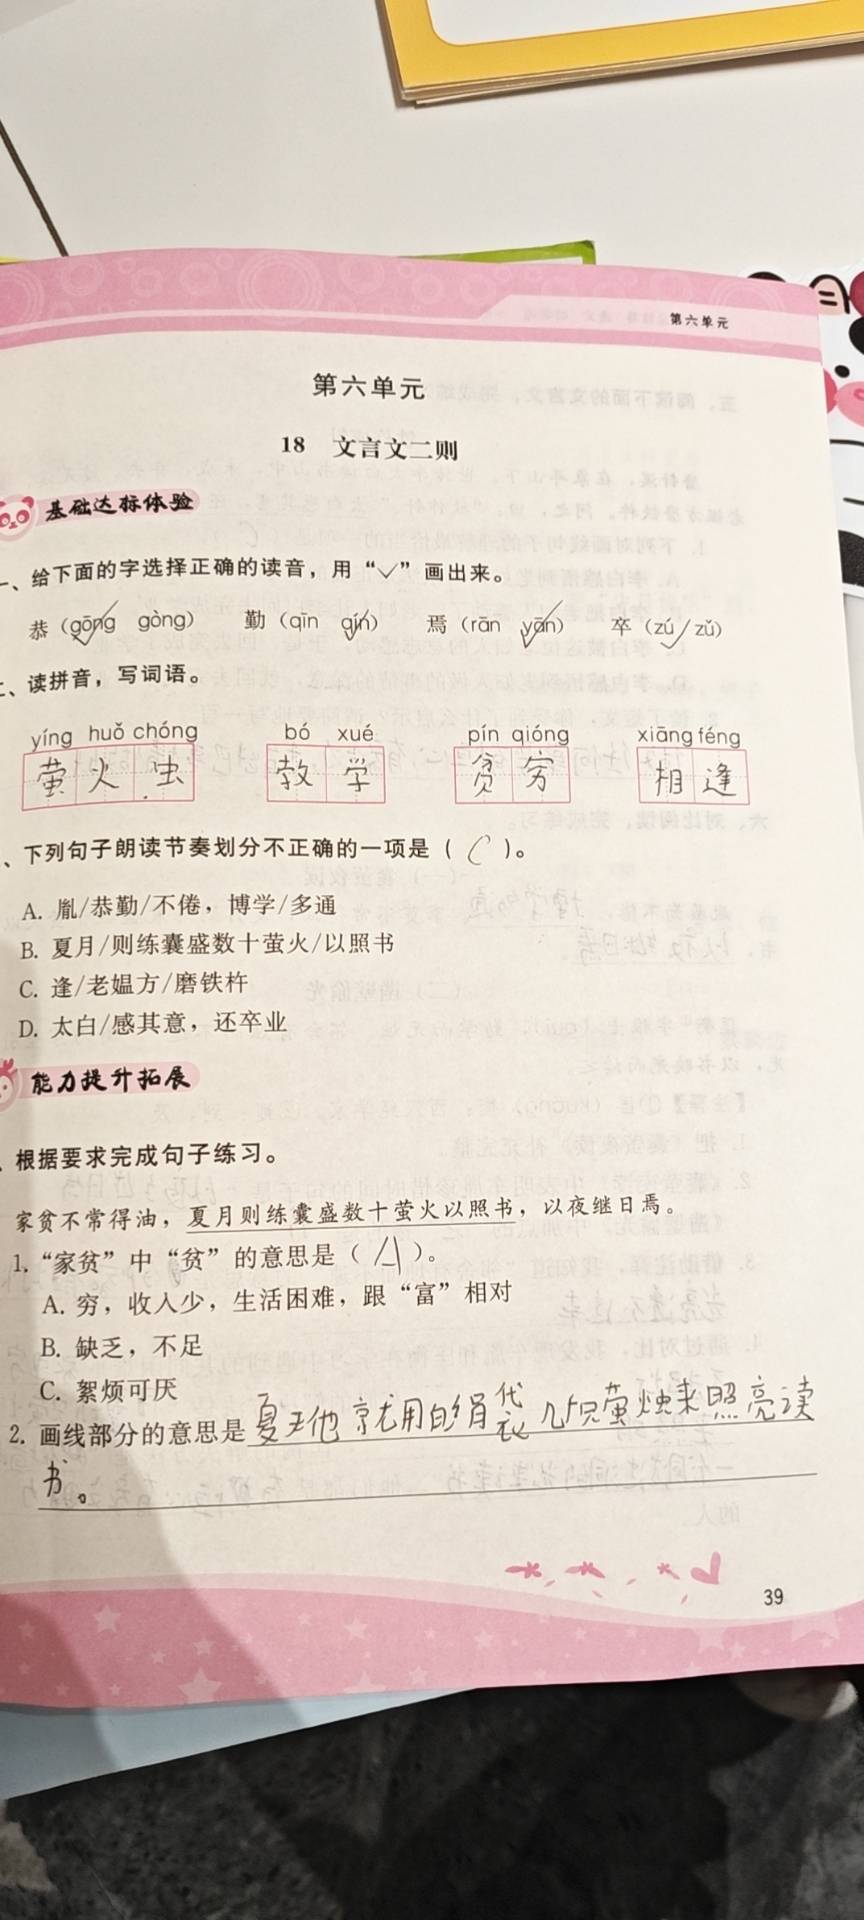 第六单元
第六单元
18 文言文二则
基础达标体验
一、给下面的字选择正确的读音，用“✓”画出来。
恭（gōng gòng） 勤（qīn qín） 焉（rān yān） 卒（zú zǔ）
二、读拼音，写词语。
yíng huǒ chóng bó xué pín qióng xiāng féng
萤火虫 教学 贫穷 相逢
、下列句子朗读节奏划分不正确的一项是（ C ）。
A. 胤/恭勤/不倦，博学/多通
B. 夏月/则练囊盛数十萤火/以照书
C. 逢/老媪方/磨铁杵
D. 太白/感其意，还卒业
能力提升拓展
、根据要求完成句子练习。
家贫不常得油，夏月则练囊盛数十萤火以照书，以夜继日焉。
1. “家贫”中“贫”的意思是（ A ）。
A. 穷，收入少，生活困难，跟“富”相对
B. 缺乏，不足
C. 絮烦可厌
2. 画线部分的意思是夏天他就用白绢代衣几只萤烛来照亮读
书。
39